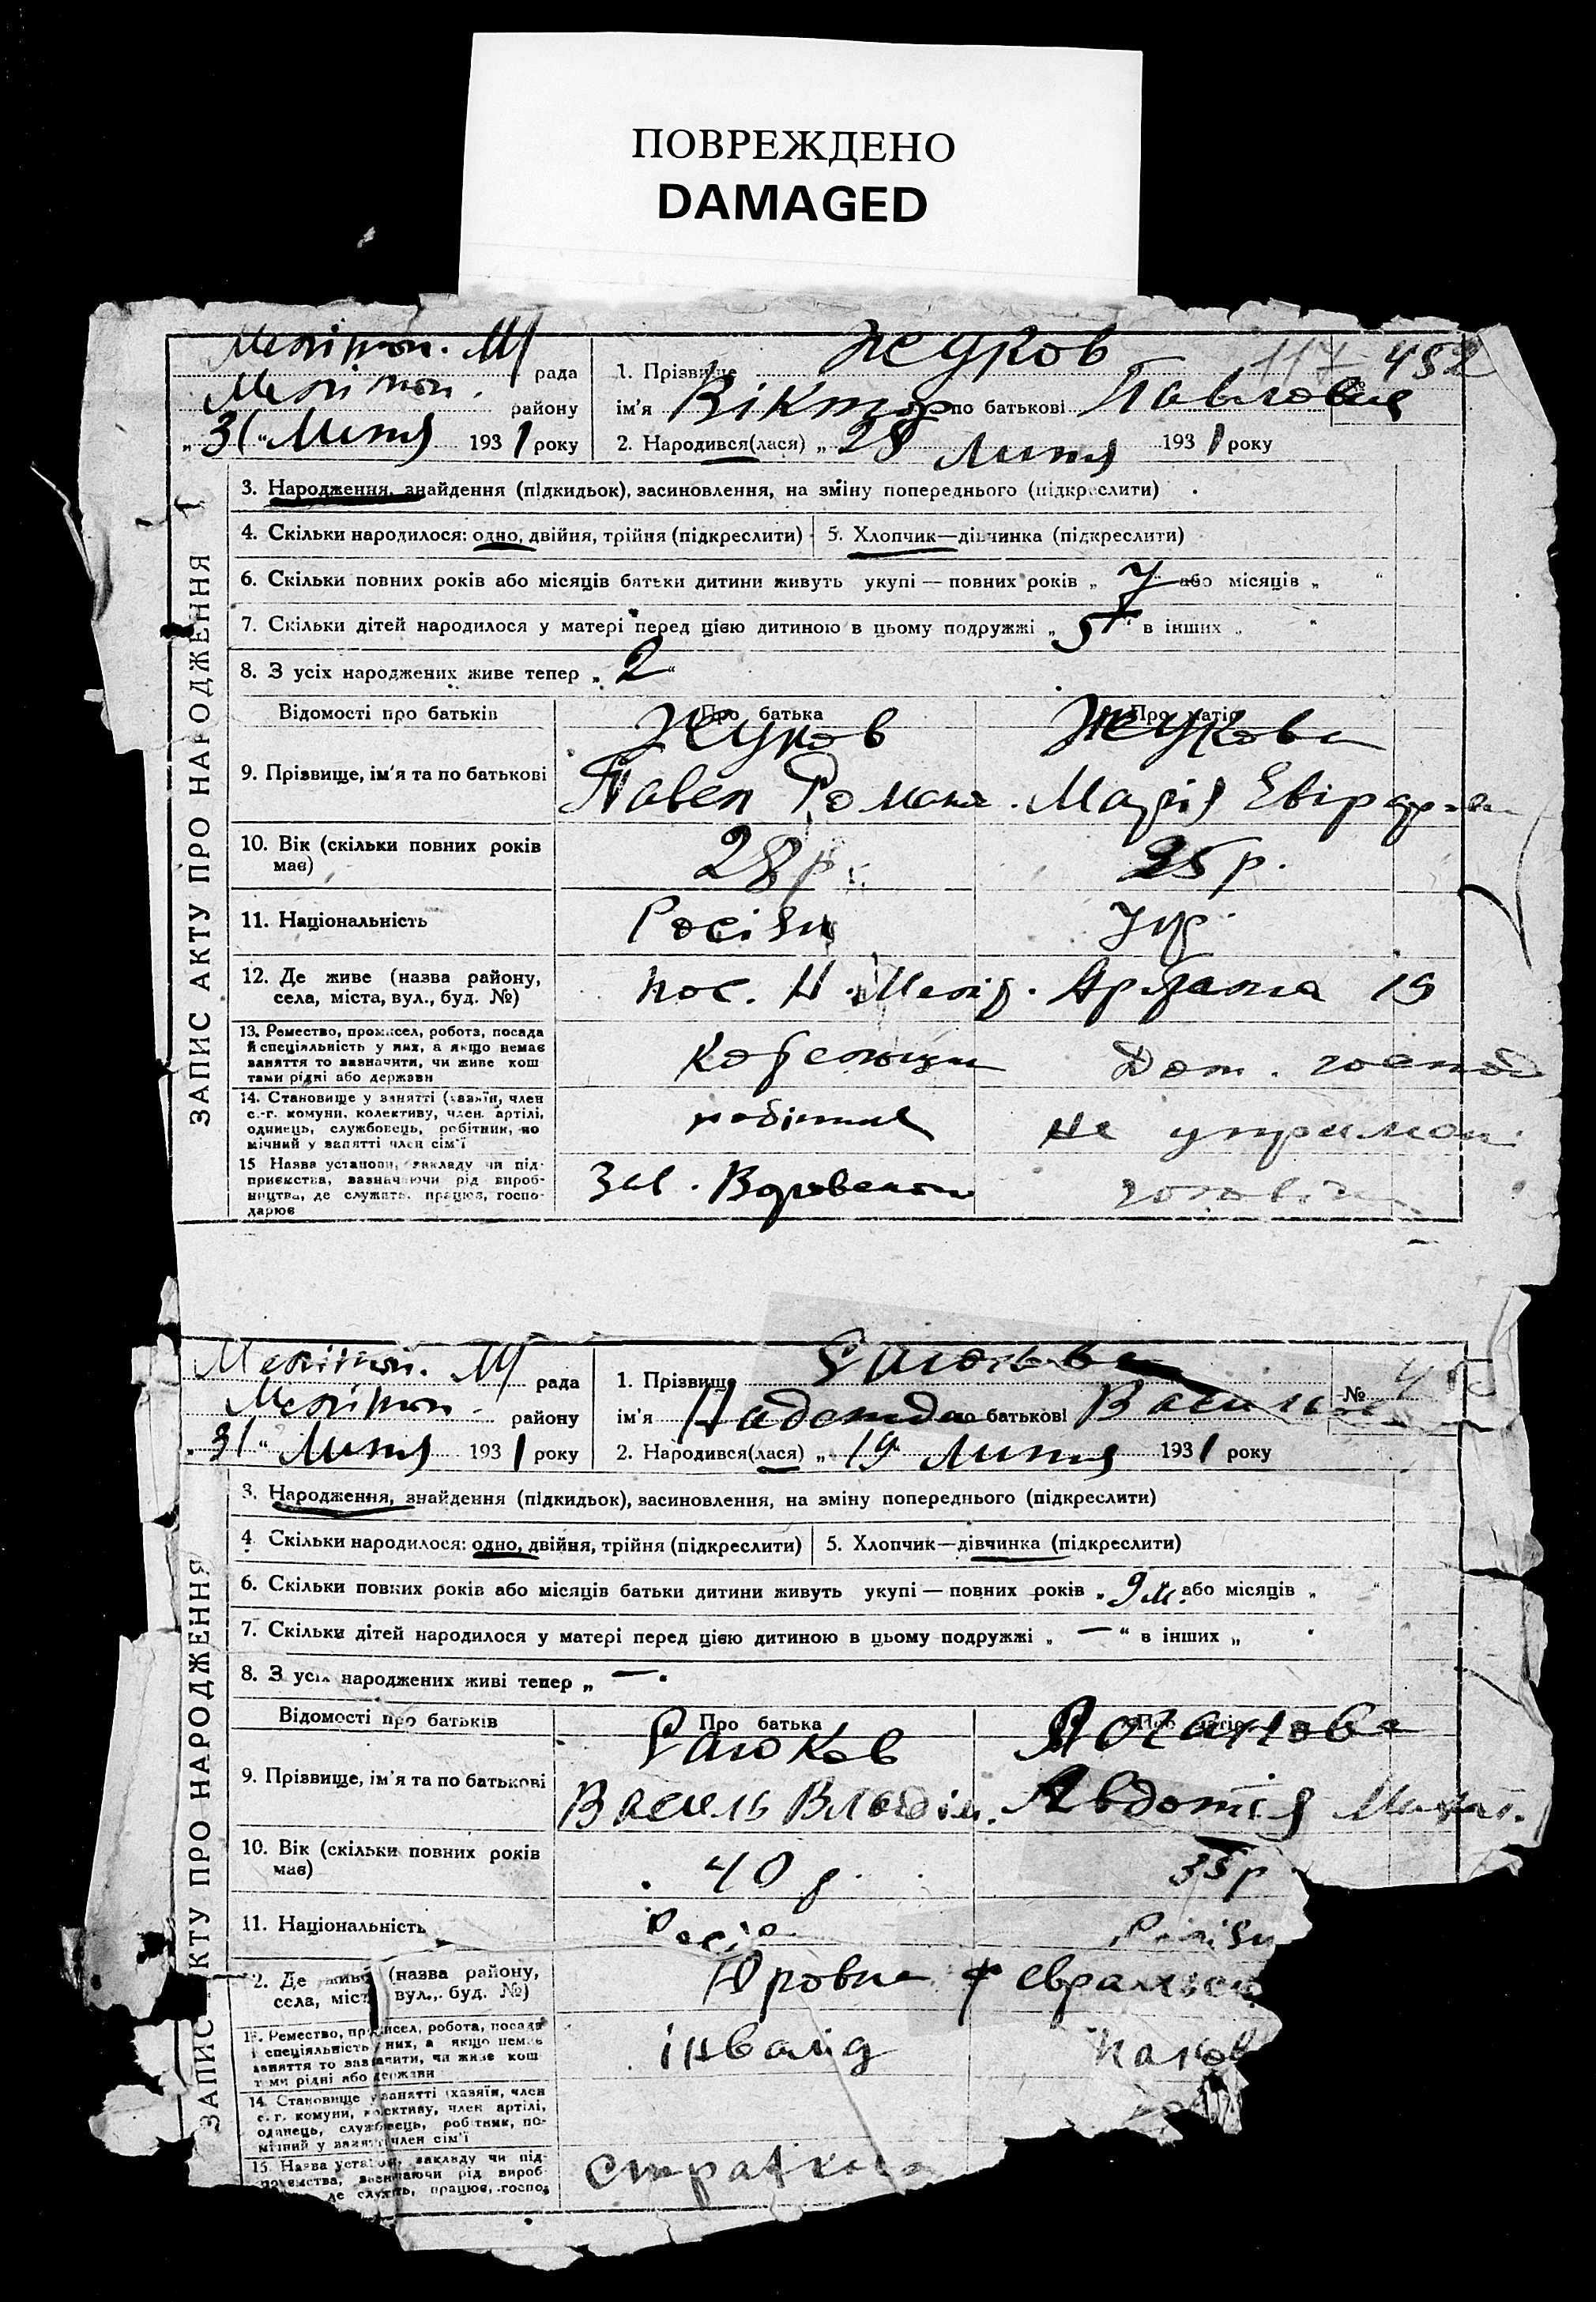 ПОВРЕЖДЕНО
DAMAGED
Меліт. М/ рада
Меліт. району
„31“ Липня 1931 року
1. Прізвище Жуков 117 452
ім'я Віктор по батькові Павлович
2. Народився(лася) „28 Липня 1931 року
ЗАПИС АКТУ ПРО НАРОДЖЕННЯ
3. Народження, знайдення (підкидьок), засиновлення, на зміну попереднього (підкреслити)
4. Скільки народилося: одно, двійня, трійня (підкреслити)
5. Хлопчик—дівчинка (підкреслити)
6. Скільки повних років або місяців батьки дитини живуть укупі — повних років „ 7 “ або місяців „ “
7. Скільки дітей народилося у матері перед цією дитиною в цьому подружжі „ 5 “ в інших „ “
8. З усіх народжених живе тепер „ 2 “
Відомості про батьків Про батька Про матір
9. Прізвище, ім'я та по батькові
Жуков Жукова
Павел Роман. Марія
10. Вік (скільки повних років має)
28 р. 25 р.
11. Національність
Росіян Укр.
12. Де живе (назва району, села, міста, вул., буд. №)
пос. Н. Меліт. 19
13. Ремество, промисел, робота, посада
й спеціяльність у них, а якщо немає
заняття то зазначити, чи живе кош-
тами рідні або держави
Дом. господ
14. Становище у занятті (хазяїн, член
с.-г. комуни, колективу, член артілі,
одинець, службовець, робітник, по-
мічний у занятті член сім'ї
робітник на утриман.
15 Назва установи, закладу чи під-
приємства, зазначаючи рід вироб-
ництва, де служить, працює, госпо-
дарює
Зав. чоловіка
Меліт. М/ рада
Меліт. району
„31“ Липня 1931 року
1. Прізвище №
ім'я Надежда по батькові Васильев
2. Народився(лася) „19“ Липня 1931 року
ЗАПИС АКТУ ПРО НАРОДЖЕННЯ
3. Народження, знайдення (підкидьок), засиновлення, на зміну попереднього (підкреслити)
4. Скільки народилося: одно, двійня, трійня (підкреслити)
5. Хлопчик—дівчинка (підкреслити)
6. Скільки повних років або місяців батьки дитини живуть укупі — повних років „ 9 м. або місяців „ “
7. Скільки дітей народилося у матері перед цією дитиною в цьому подружжі „ — “ в інших „
8. З усіх народжених живі тепер „ —
Відомості про батьків Про батька Про матір
9. Прізвище, ім'я та по батькові
Василь Владім. Авдотія Михайл.
10. Вік (скільки повних років має)
40 р. 35 р
11. Національність
Росія Росіян
12. Де живе (назва району, села, міста, вул., буд. №)
13. Ремество, промисел, робота, посада
й спеціяльність у них, а якщо немає
заняття то зазначити, чи живе кош-
тами рідні або держави
інвалід
14. Становище у занятті (хазяїн, член
с.-г. комуни, колективу, член артілі,
одинець, службовець, робітник, по-
мічний у занятті член сім'ї
15. Назва установи, закладу чи під-
приємства, зазначаючи рід вироб-
де служить, працює, госпо-
Страхкаса